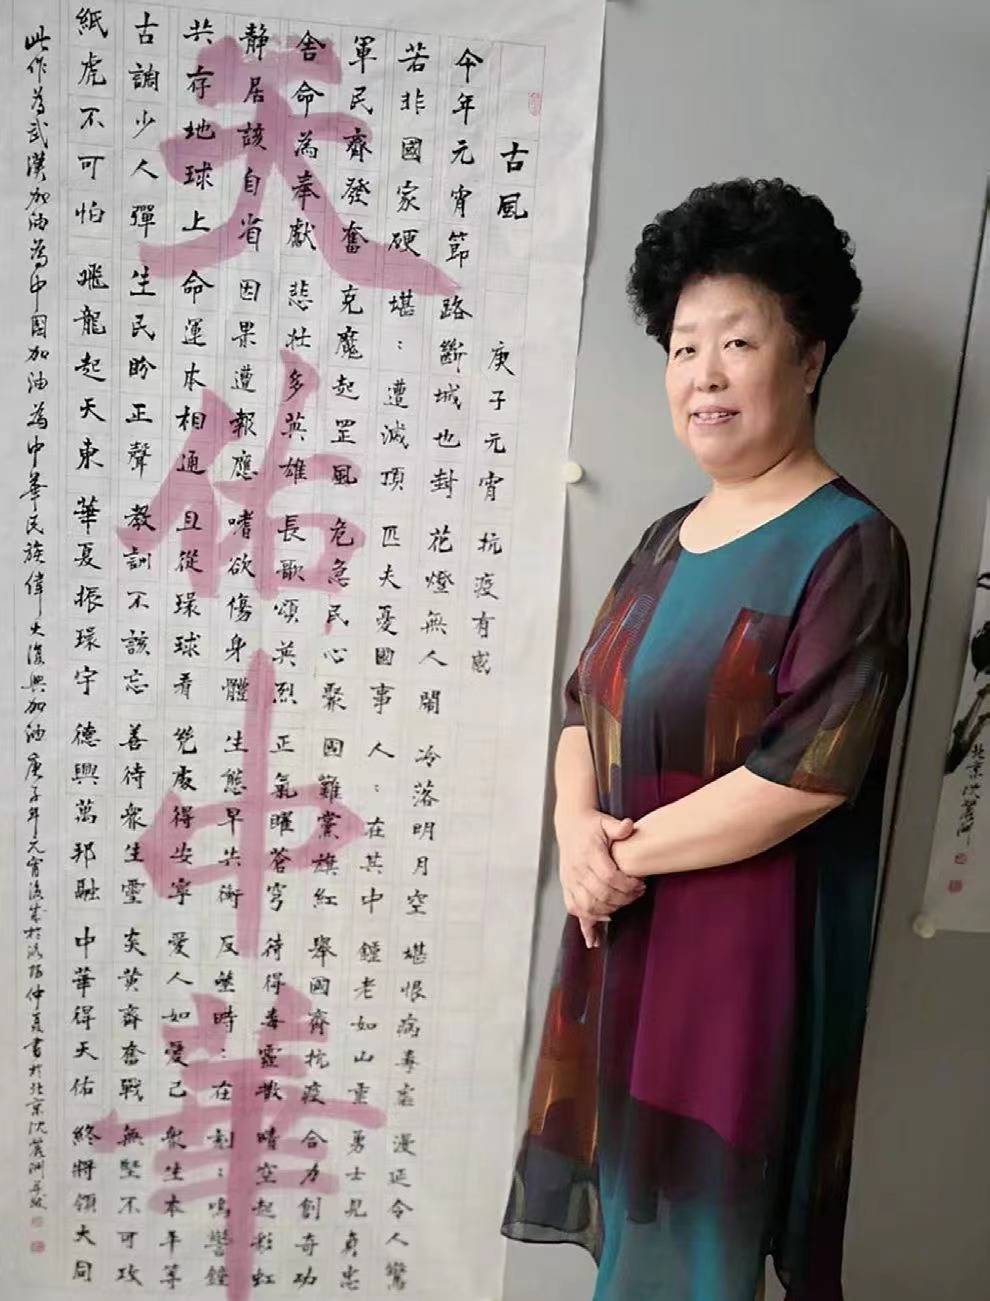 古風 庚子元宵抗疫有感
今年元宵節 路斷城也封 花燈無人鬧 冷落明月空 堪恨病毒虐 漫延令人驚
若非國家硬 堪：遭滅頂 匹夫憂國事 人：在其中 鍾老如山重 勇士見真忠
軍民齊發奮 克魔起罡風 危急民心聚 國難黨旗紅 舉國齊抗疫 合力創奇功
舍命為奉獻 悲壯多英雄 長歌頌英烈 正氣曜蒼穹 待得毒靈散 晴空起彩虹
静居該自省 因果遭報應 嗜欲傷身體 生態早失衡 反噬時：在 刻：鳴警鐘
共存地球上 命運本相通 且從環球看 幾處得安寧 愛人如愛己 衆生本平等
古調少人彈 生民盼正聲 教訓不該忘 善待衆生靈 炎黄齊奮戰 無堅不可攻
紙虎不可怕 飛龍起天東 華夏振環宇 德興萬邦融 中華得天佑 終將領大同
此作為武漢加油為中国加油為中華民族偉大復興加油 庚子年元宵後成於洛陽仲夏書於北京沈麗洲并跋
天佑中華
北京沈麗洲